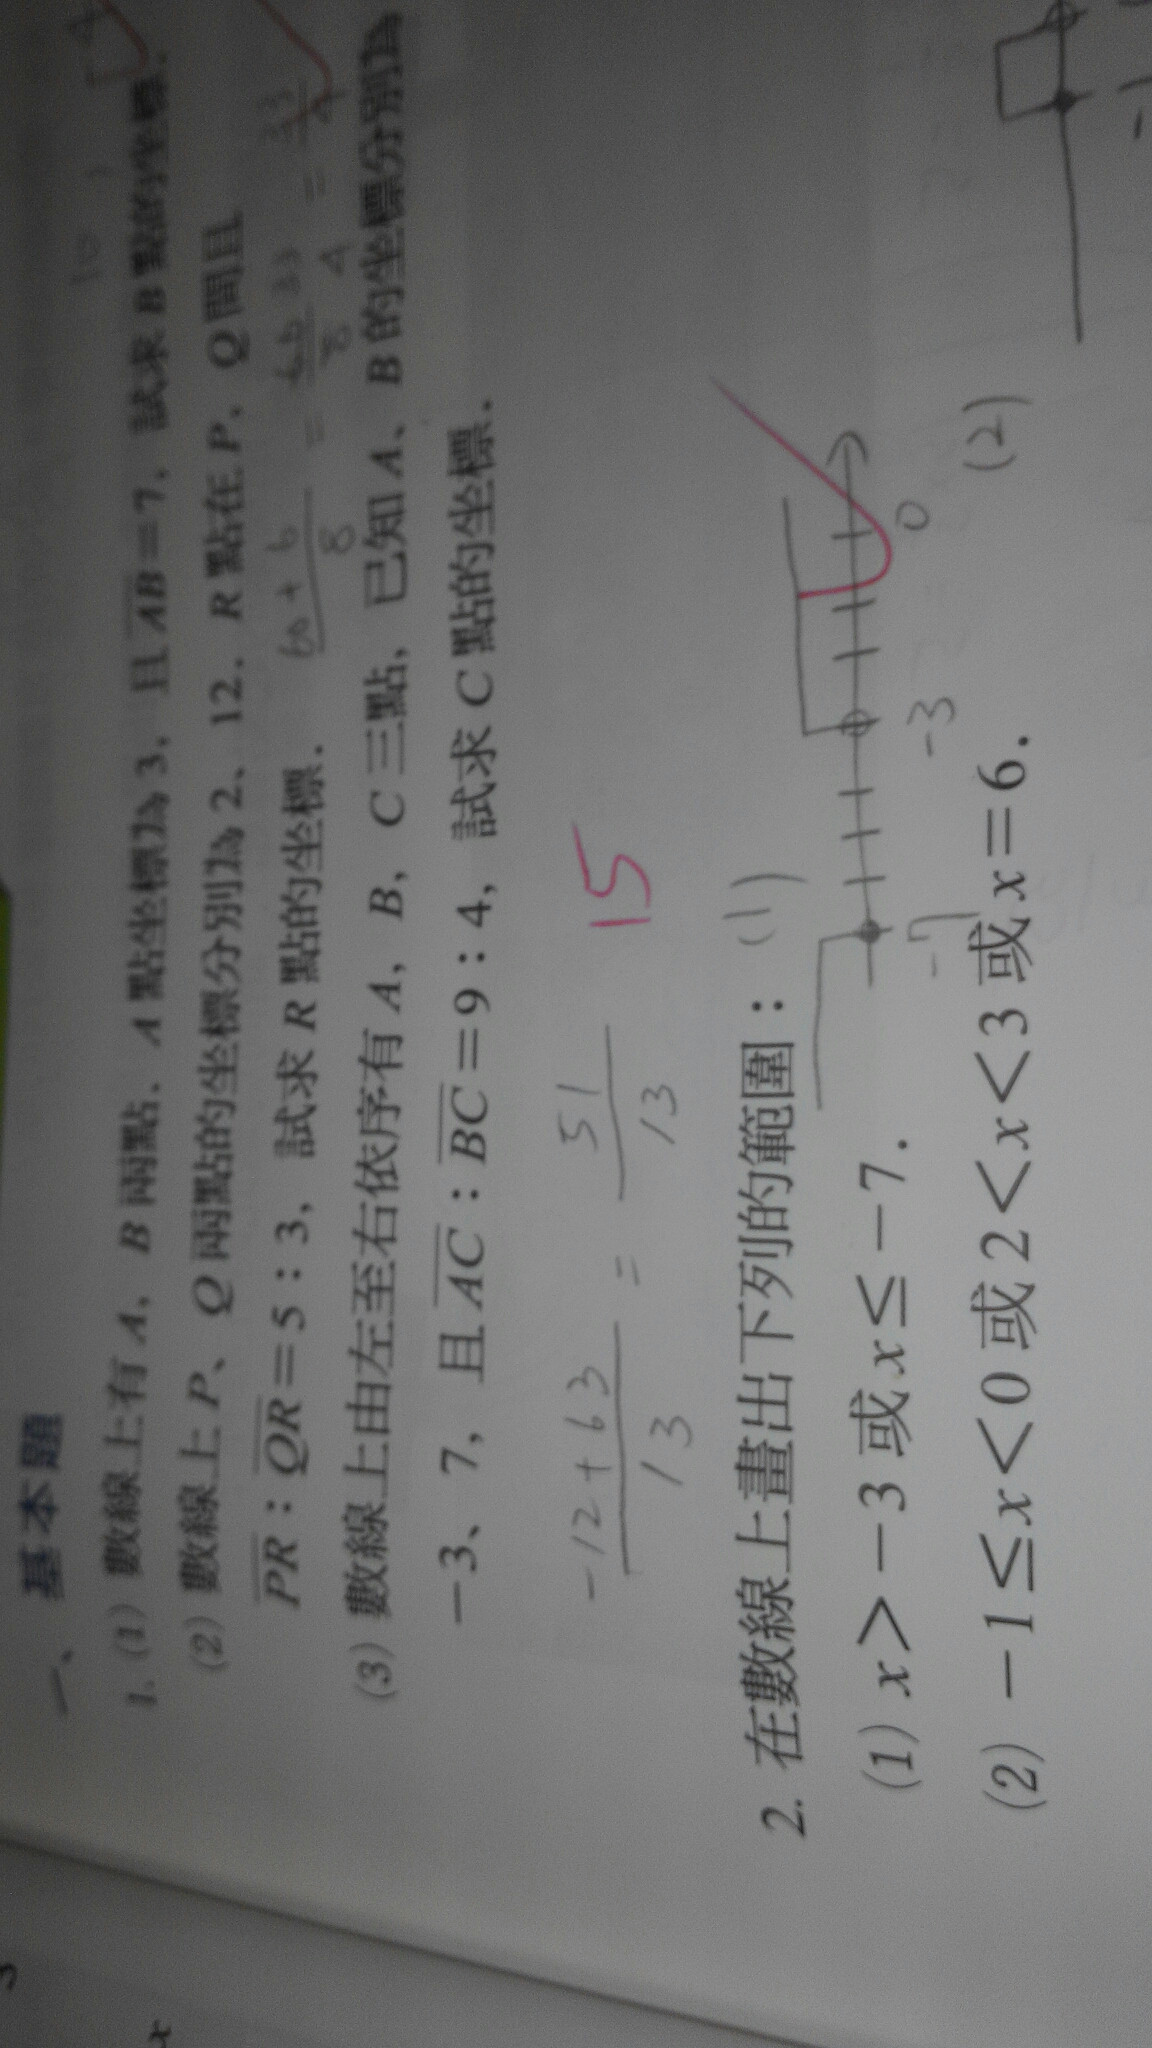 一、基本題
10, -4
1. (1) 數線上有 A、B 兩點，A 點坐標為 3，且 AB=7，試求 B 點的坐標.
(2) 數線上 P、Q 兩點的坐標分別為 2、12，R 點在 P、Q 間且
PR：QR=5：3，試求 R 點的坐標.
60+6/8 = 66/8 33/4 = 33/4
(3) 數線上由左至右依序有 A，B，C 三點，已知 A、B 的坐標分別為
-3、7，且 AC：BC=9：4，試求 C 點的坐標.
-12+63/13 = 51/13 15
2. 在數線上畫出下列的範圍： (1)
-7 -3 0
(1) x>-3 或 x≤-7.
(2)
(2) -1≤x<0 或 2<x<3 或 x=6.
-1
3
x